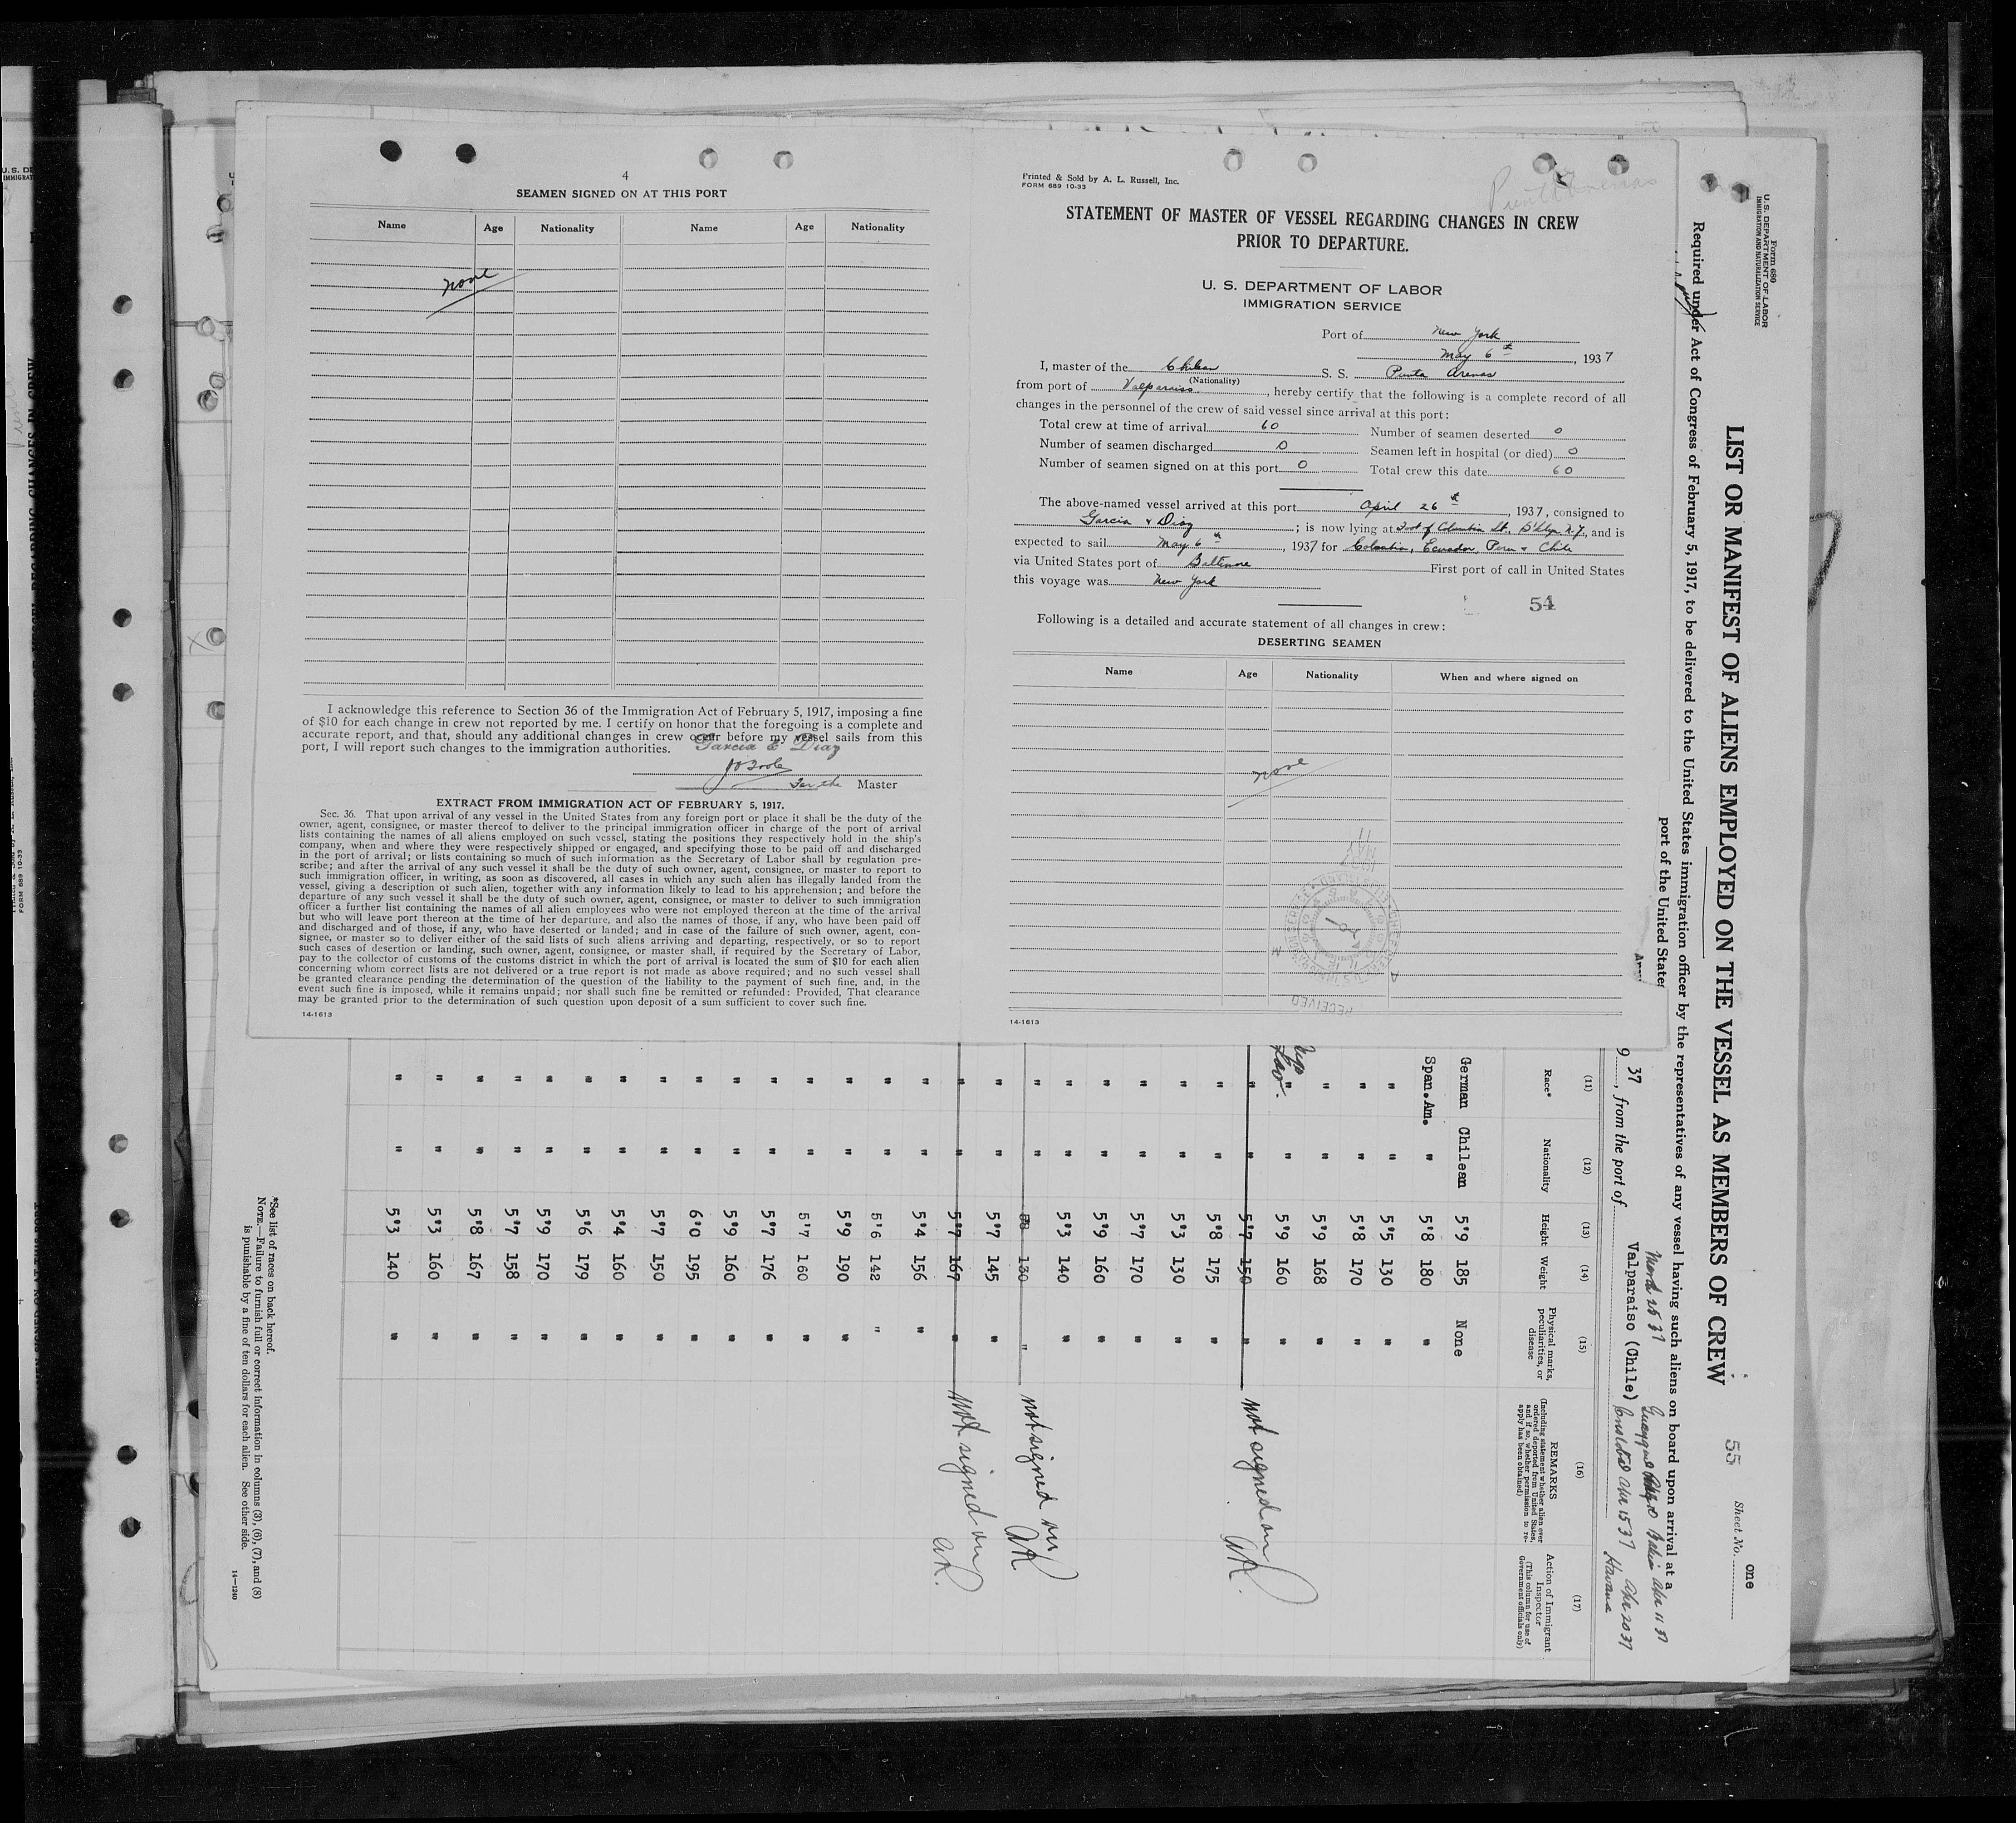 4
SEAMEN SIGNED ON AT THIS PORT
Name Age Nationality Name Age Nationality
none
I acknowledge this reference to Section 36 of the Immigration Act of February 5, 1917, imposing a fine
of $10 for each change in crew not reported by me. I certify on honor that the foregoing is a complete and
accurate report, and that, should any additional changes in crew occur before my vessel sails from this
port, I will report such changes to the immigration authorities. Garcia & Diaz
For the Master
EXTRACT FROM IMMIGRATION ACT OF FEBRUARY 5, 1917.
Sec. 36. That upon arrival of any vessel in the United States from any foreign port or place it shall be the duty of the
owner, agent, consignee, or master thereof to deliver to the principal immigration officer in charge of the port of arrival
lists containing the names of all aliens employed on such vessel, stating the positions they respectively hold in the ship's
company, when and where they were respectively shipped or engaged, and specifying those to be paid off and discharged
in the port of arrival; or lists containing so much of such information as the Secretary of Labor shall by regulation pre-
scribe; and after the arrival of any such vessel it shall be the duty of such owner, agent, consignee, or master to report to
such immigration officer, in writing, as soon as discovered, all cases in which any such alien has illegally landed from the
vessel, giving a description of such alien, together with any information likely to lead to his apprehension; and before the
departure of any such vessel it shall be the duty of such owner, agent, consignee, or master to deliver to such immigration
officer a further list containing the names of all alien employees who were not employed thereon at the time of the arrival
but who will leave port thereon at the time of her departure, and also the names of those, if any, who have been paid off
and discharged and of those, if any, who have deserted or landed; and in case of the failure of such owner, agent, con-
signee, or master so to deliver either of the said lists of such aliens arriving and departing, respectively, or so to report
such cases of desertion or landing, such owner, agent, consignee, or master shall, if required by the Secretary of Labor,
pay to the collector of customs of the customs district in which the port of arrival is located the sum of $10 for each alien
concerning whom correct lists are not delivered or a true report is not made as above required; and no such vessel shall
be granted clearance pending the determination of the question of the liability to the payment of such fine, and, in the
event such fine is imposed, while it remains unpaid; nor shall such fine be remitted or refunded: Provided, That clearance
may be granted prior to the determination of such question upon deposit of a sum sufficient to cover such fine.
14-1613
Printed & Sold by A. L. Russell, Inc.
FORM 689 10-33
Punta Arenas
STATEMENT OF MASTER OF VESSEL REGARDING CHANGES IN CREW
PRIOR TO DEPARTURE.
U. S. DEPARTMENT OF LABOR
IMMIGRATION SERVICE
Port of New York
May 6th, 1937
I, master of the Chilean S. S. Punta Arenas
(Nationality)
from port of Valparaiso, hereby certify that the following is a complete record of all
changes in the personnel of the crew of said vessel since arrival at this port:
Total crew at time of arrival 60 Number of seamen deserted 0
Number of seamen discharged 0 Seamen left in hospital (or died) 0
Number of seamen signed on at this port 0 Total crew this date 60
The above-named vessel arrived at this port April 26th, 1937, consigned to
Garcia & Diaz; is now lying at Foot of Columbia St., B'klyn N.Y., and is
expected to sail May 6th, 1937 for Colombia, Ecuador, Peru & Chile
via United States port of Baltimore First port of call in United States
this voyage was New York
54
Following is a detailed and accurate statement of all changes in crew:
DESERTING SEAMEN
Name Age Nationality When and where signed on
none
RECEIVED
14-1613
Form 680
U. S. DEPARTMENT OF LABOR
IMMIGRATION AND NATURALIZATION SERVICE
LIST OR MANIFEST OF ALIENS EMPLOYED ON THE VESSEL AS MEMBERS OF CREW
55
Sheet No. one
Required under Act of Congress of February 5, 1917, to be delivered to the United States immigration officer by the representatives of any vessel having such aliens on board upon arrival at a
port of the United States
37, from the port of Valparaiso (Chile)
Havana
(11) (12) (13) (14) (15) (16) (17)
Race* Nationality Height Weight Physical marks, peculiarities, or disease REMARKS (Including statement whether alien ever ordered deported from United States, and if so, whether permission to re-apply has been obtained) Action of Immigrant Inspector (This column for use of Government officials only)
German Chilean 5'9 185 None
Span.Am. " 5'8 180 "
" " 5'5 130 "
" " 5'8 170 "
" " 5'9 168 "
" " 5'9 160 "
" " 5'7 150 " not signed on
" " 5'8 175 "
" " 5'3 130 "
" " 5'7 170 "
" " 5'9 160 "
" " 5'3 140 "
" " 5'8 130 " not signed on
" " 5'7 145 "
" " 5'7 167 " not signed on
" " 5'4 156 "
" " 5'6 142 "
" " 5'9 190 "
" " 5'7 160 "
" " 5'7 176 "
" " 5'9 160 "
" " 6'0 195 "
" " 5'7 150 "
" " 5'4 160 "
" " 5'6 179 "
" " 5'9 170 "
" " 5'7 158 "
" " 5'8 167 "
" " 5'3 160 "
" " 5'3 140 "
*See list of races on back hereof.
NOTE.—Failure to furnish full or correct information in columns (3), (6), (7), and (8)
is punishable by a fine of ten dollars for each alien. See other side.
14—1240